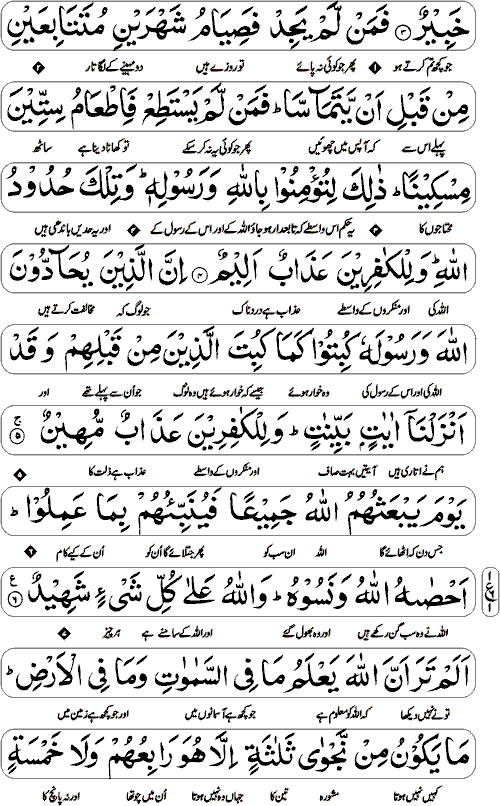 خَبِيْرٌ ۝۳ فَمَنْ لَّمْ يَجِدْ فَصِيَامُ شَهْرَيْنِ مُتَتَابِعَيْنِ
جو کچھ تم کرتے ہو ۱ پھر جو کوئی نہ پائے تو روزے ہیں دو مہینے کے لگاتار ۲
مِنْ قَبْلِ اَنْ يَّتَمَآسَّا ۚ فَمَنْ لَّمْ يَسْتَطِعْ فَاِطْعَامُ سِتِّيْنَ
پہلے اس سے کہ آپس میں چھوئیں پھر جو کوئی یہ نہ کرسکے تو کھانا دینا ہے ساٹھ
مِسْكِيْنًا ؕ ذٰلِكَ لِتُؤْمِنُوْا بِاللّٰهِ وَرَسُوْلِهٖ ؕ وَتِلْكَ حُدُوْدُ
محتاجوں کا ۳ یہ حکم اس واسطے کہ تابعدار ہوجاؤ اللہ کے اور اس کے رسول کے ۴ اور یہ حدیں باندھی ہیں
اللّٰهِ ؕ وَلِلْكٰفِرِيْنَ عَذَابٌ اَلِيْمٌ ۝۴ اِنَّ الَّذِيْنَ يُحَآدُّوْنَ
اللہ کی اور منکروں کے واسطے عذاب ہے دردناک جو لوگ کہ مخالفت کرتے ہیں
اللّٰهَ وَرَسُوْلَهٗ كُبِتُوْا كَمَا كُبِتَ الَّذِيْنَ مِنْ قَبْلِهِمْ وَقَدْ
اللہ کی اور اس کے رسول کی وہ خوار ہوئے جیسے کہ خوار ہوئے ہیں وہ لوگ جو اُن سے پہلے تھے اور
اَنْزَلْنَآ اٰيٰتٍۭ بَيِّنٰتٍ ؕ وَلِلْكٰفِرِيْنَ عَذَابٌ مُّهِيْنٌ ۝۵ ۚ
ہم نے اتاری ہیں آیتیں بہت صاف اور منکروں کے واسطے عذاب ہے ذلت کا ۵
يَوْمَ يَبْعَثُهُمُ اللّٰهُ جَمِيْعًا فَيُنَبِّئُهُمْ بِمَا عَمِلُوْا ؕ
جس دن کہ اٹھائے گا اللہ ان سب کو پھر جتلائے گا اُن کو اُن کے کیے کام ۶
اَحْصٰىهُ اللّٰهُ وَنَسُوْهُ ؕ وَاللّٰهُ عَلٰى كُلِّ شَيْءٍ شَهِيْدٌ ۝۶ ع
اللہ نے وہ سب گن رکھے ہیں اور وہ بھول گئے اور اللہ کے سامنے ہے ہر چیز
اَلَمْ تَرَ اَنَّ اللّٰهَ يَعْلَمُ مَا فِى السَّمٰوٰتِ وَمَا فِى الْاَرْضِ ؕ
تو نے نہیں دیکھا کہ اللہ کو معلوم ہے جو کچھ ہے آسمانوں میں اور جو کچھ ہے زمین میں
مَا يَكُوْنُ مِنْ نَّجْوٰى ثَلٰثَةٍ اِلَّا هُوَ رَابِعُهُمْ وَلَا خَمْسَةٍ
کہیں نہیں ہوتا مشورہ تین کا جہاں وہ نہیں ہوتا اُن میں چوتھا اور نہ پانچ کا